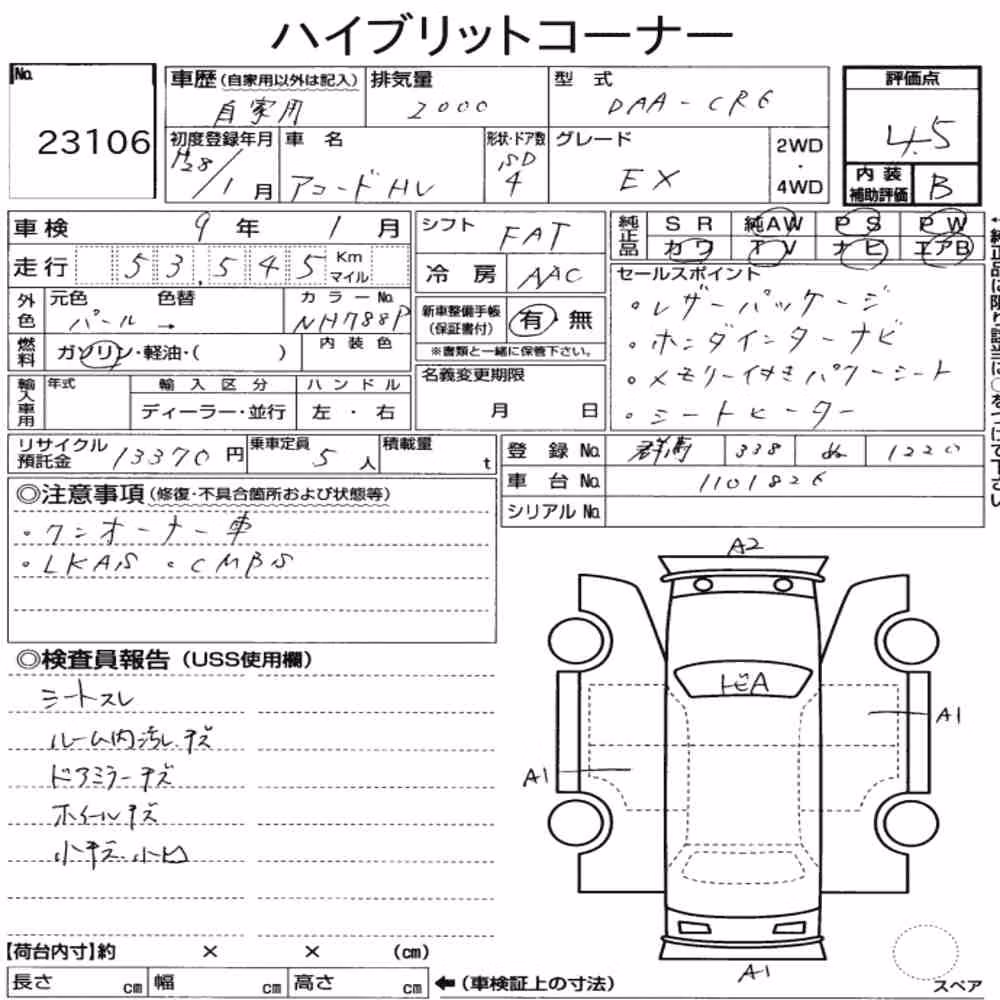 ハイブリットコーナー
No.
23106
車歴(自家用以外は記入)
自家用
排気量
2000
型式
DAA-CR6
評価点
4.5
内装補助評価
B
初度登録年月
H28/1月
車名
アコードHV
形状・ドア数
SD
4
グレード
EX
2WD
・
4WD
車検 9年 1月
走行 53,545 Km マイル
シフト
FAT
冷房
AAC
純正品
SR 純AW PS PW
カワ TV ナビ エアB
←純正品に限り該当に○をつけて下さい
外色
元色 色替
パール →
カラーNo.
NH788P
燃料
ガソリン・軽油・( )
内装色
新車整備手帳(保証書付)
有・無
※書類と一緒に保管下さい。
セールスポイント
・レザーパッケージ
・ホンダインターナビ
・メモリー付きパワーシート
・シートヒーター
輸入車用
年式
輸入区分
ディーラー・並行
ハンドル
左・右
名義変更期限
月 日
リサイクル預託金
13370円
乗車定員
5人
積載量
t
登録No. 群馬 338 ぬ 1220
車台No. 1101826
シリアルNo.
◎注意事項(修復・不具合箇所および状態等)
・ワンオーナー車
・LKAS ・CMBS
◎検査員報告(USS使用欄)
シートスレ
ルーム内汚レ、キズ
ドアミラーキズ
ホイールキズ
小キズ、小凹
A2
トビA
A1
A1
A1
スペア
【荷台内寸】約 × × (cm)
長さ cm 幅 cm 高さ cm ←(車検証上の寸法)